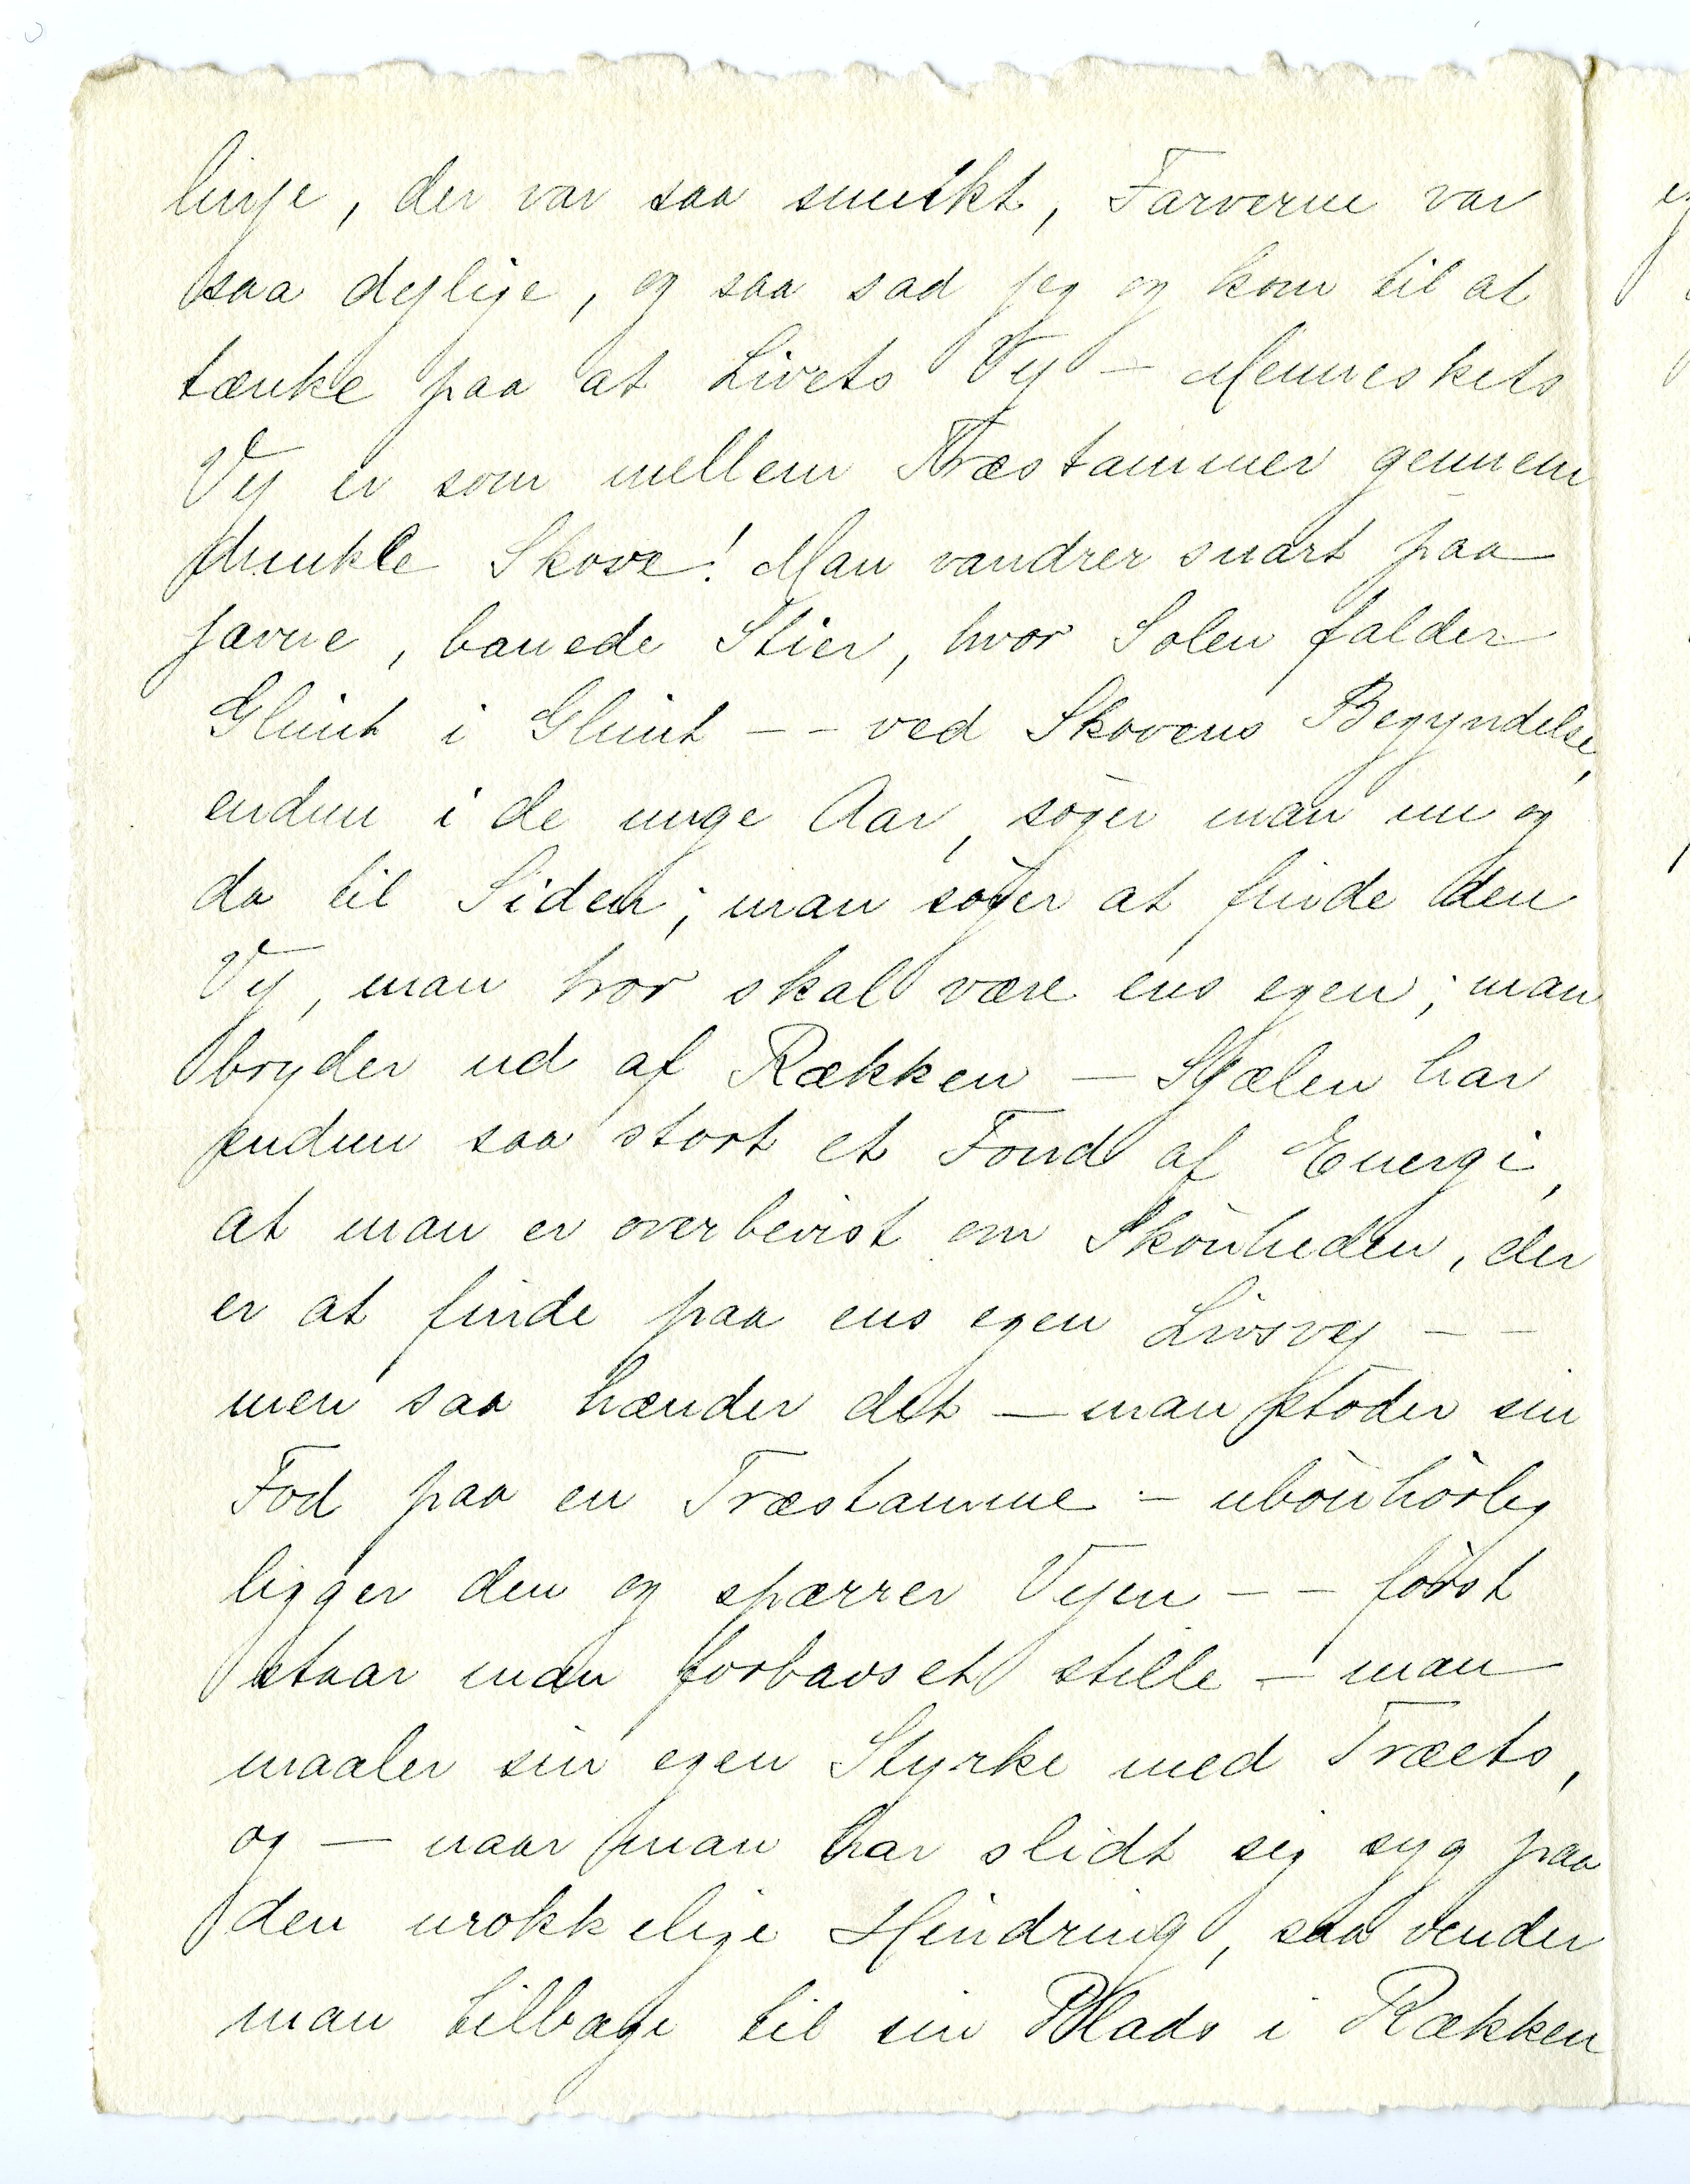 linje, der var saa smukt, Farverne var
saa dejlige, og saa sad jeg og kom til at
tænke paa at Livets Vej – Menneskets
Vej er som mellem Træstammer gennem
dunkle Skove! Man vandrer snart paa
jævne, banede Stier, hvor Solen falder
Glimt i Glimt – – ved Skovens Begyndelse,
endnu i de unge Aar, søger man nu og
da til Siden; man søger at finde den
Vej, man tror skal være ens egen; man
bryder ud af Rækken – Sjælen har
endnu saa stort et Fond af Energi,
at man er overbevist om Skønheden, der
er at finde paa ens egen Livsvej – –
men saa hænder det – man støder sin
Fod paa en Træstamme – ubønhørlig
ligger den og spærrer Vejen – – først
staar man forbavset stille – man
maaler sin egen Styrke med Træets,
og – naar man har slidt sig syg paa
den urokkelige Hindring, saa vender
man tilbage til sin Plads i Rækken